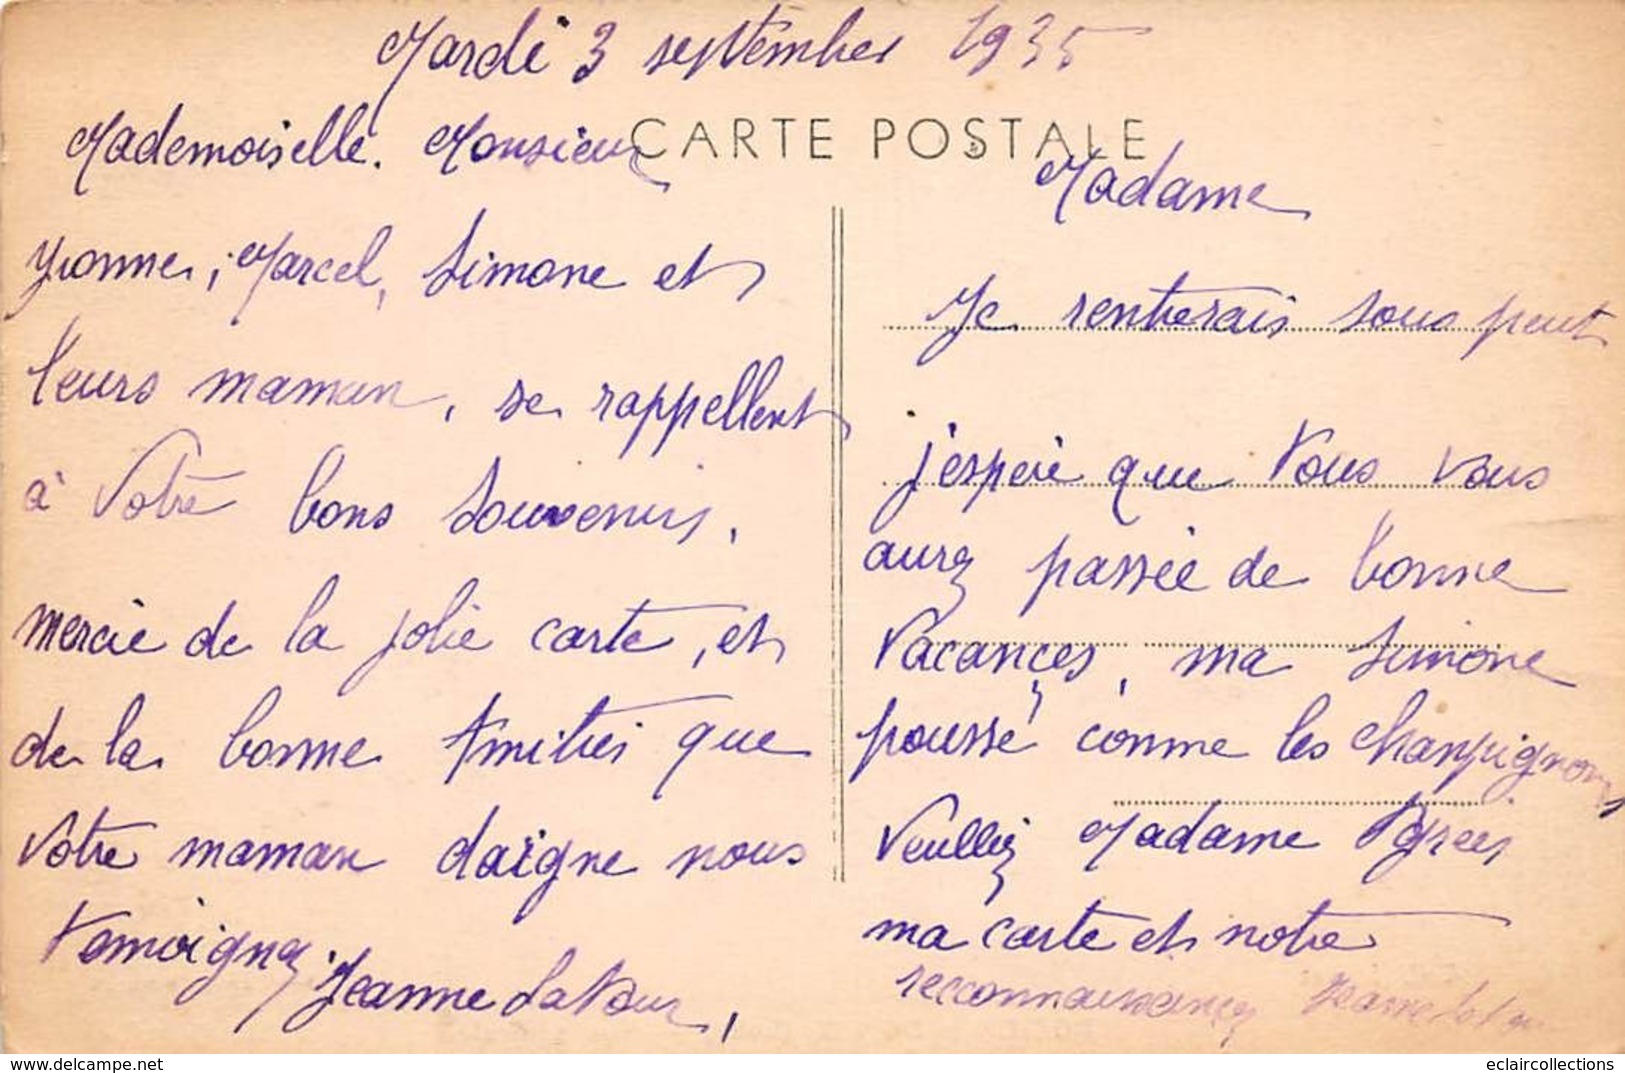 Mardi 3 septembre 1935
CARTE POSTALE
Mademoiselle. Monsieur
Yvonne, Marcel, Simone et
leurs maman, se rappellent
à Votre bons souvenirs,
mercie de la jolie carte, et
de la bonne Amitiés que
votre maman daigne nous
temoignez. Jeanne Latour,
Madame
Je rentrerais sous peut
j'espère que Vous vous
aurez passée de bonne
Vacançes, ma Simone
poussé comme les champignons
Veulliez Madame Agréer
ma carte et notre
reconnaissances Jeanne Latour
eclaircollections